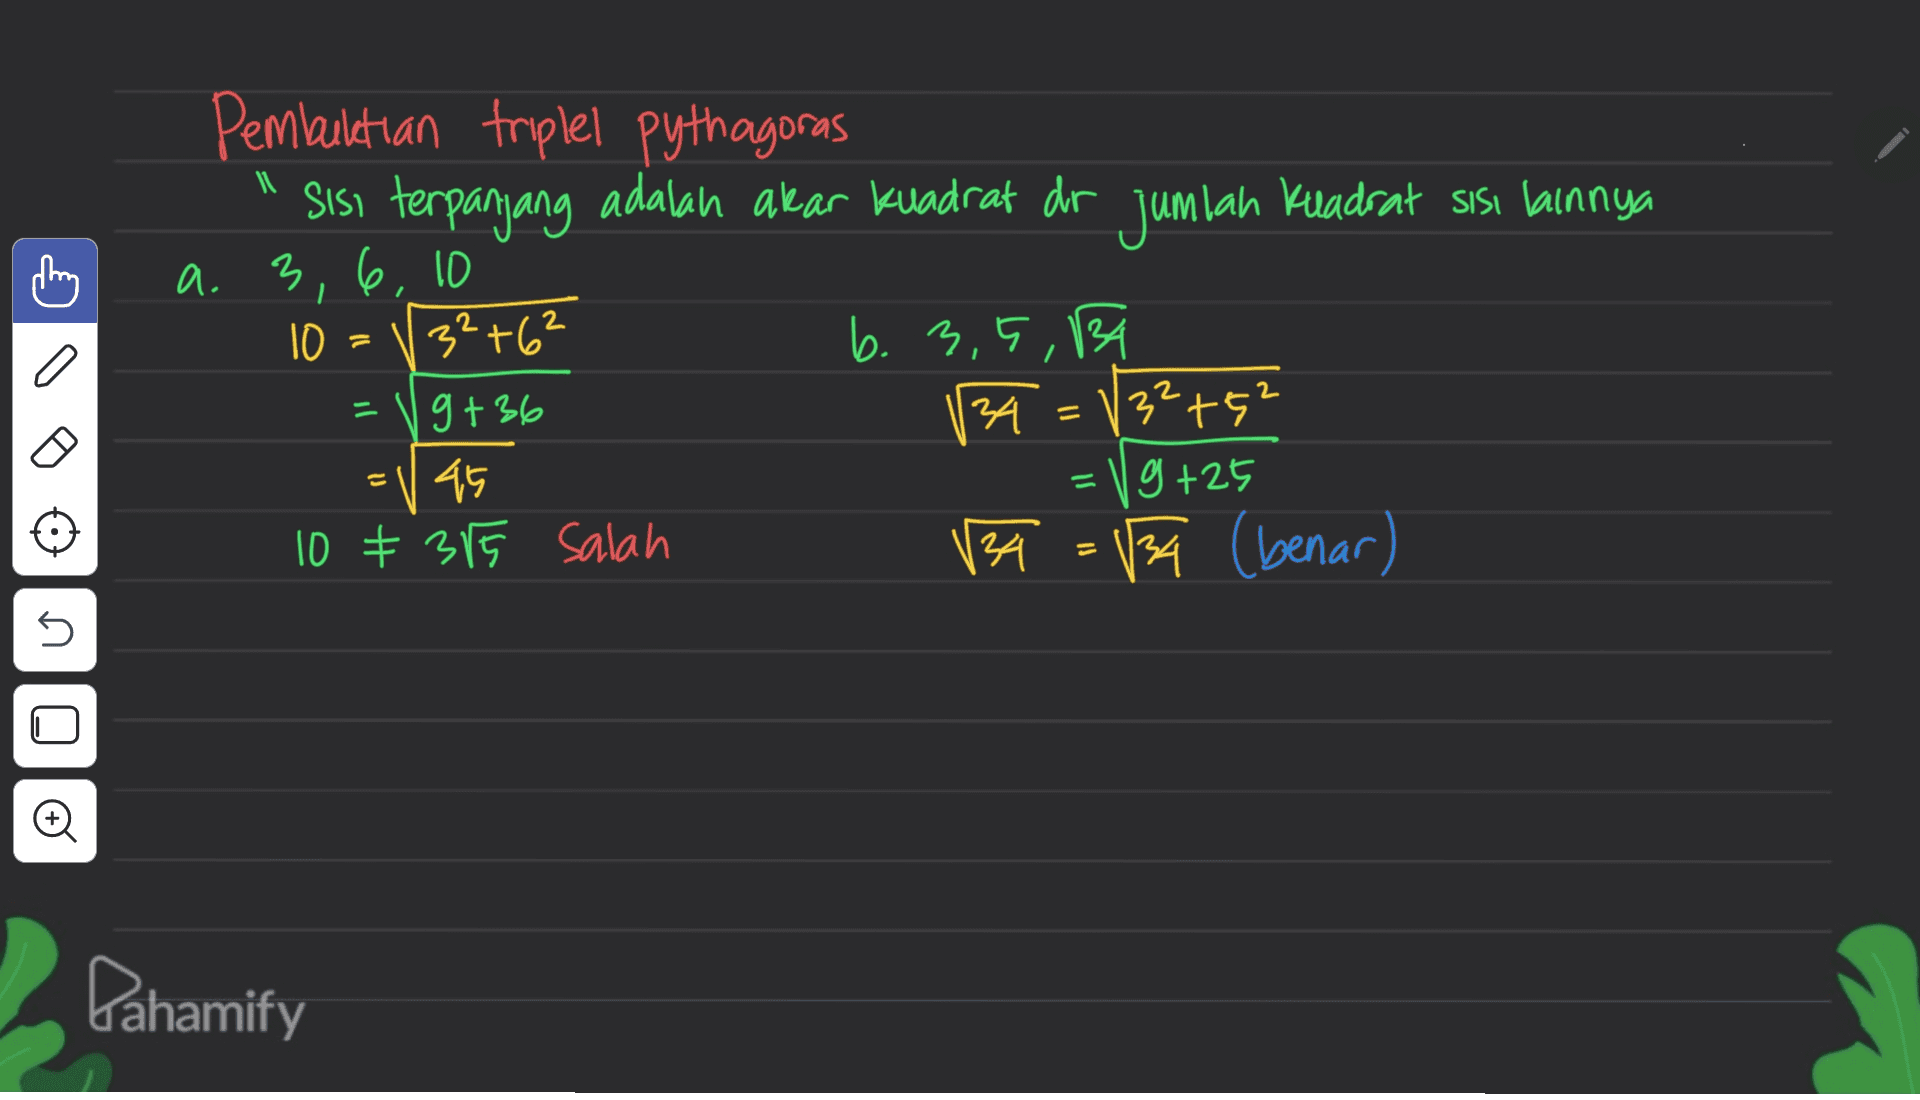 Pembuktian triplel pythagoras
" sisi terpanjang adalah akar kuadrat dr jumlah kuadrat sisi lainnya
a. 3, 6, 10
10 = √3²+6²
= √9+36
= √45
10 ≠ 3√5 Salah
b. 3, 5, √34
√34 = √3²+5²
= √9+25
√34 = √34 (benar)
Pahamify